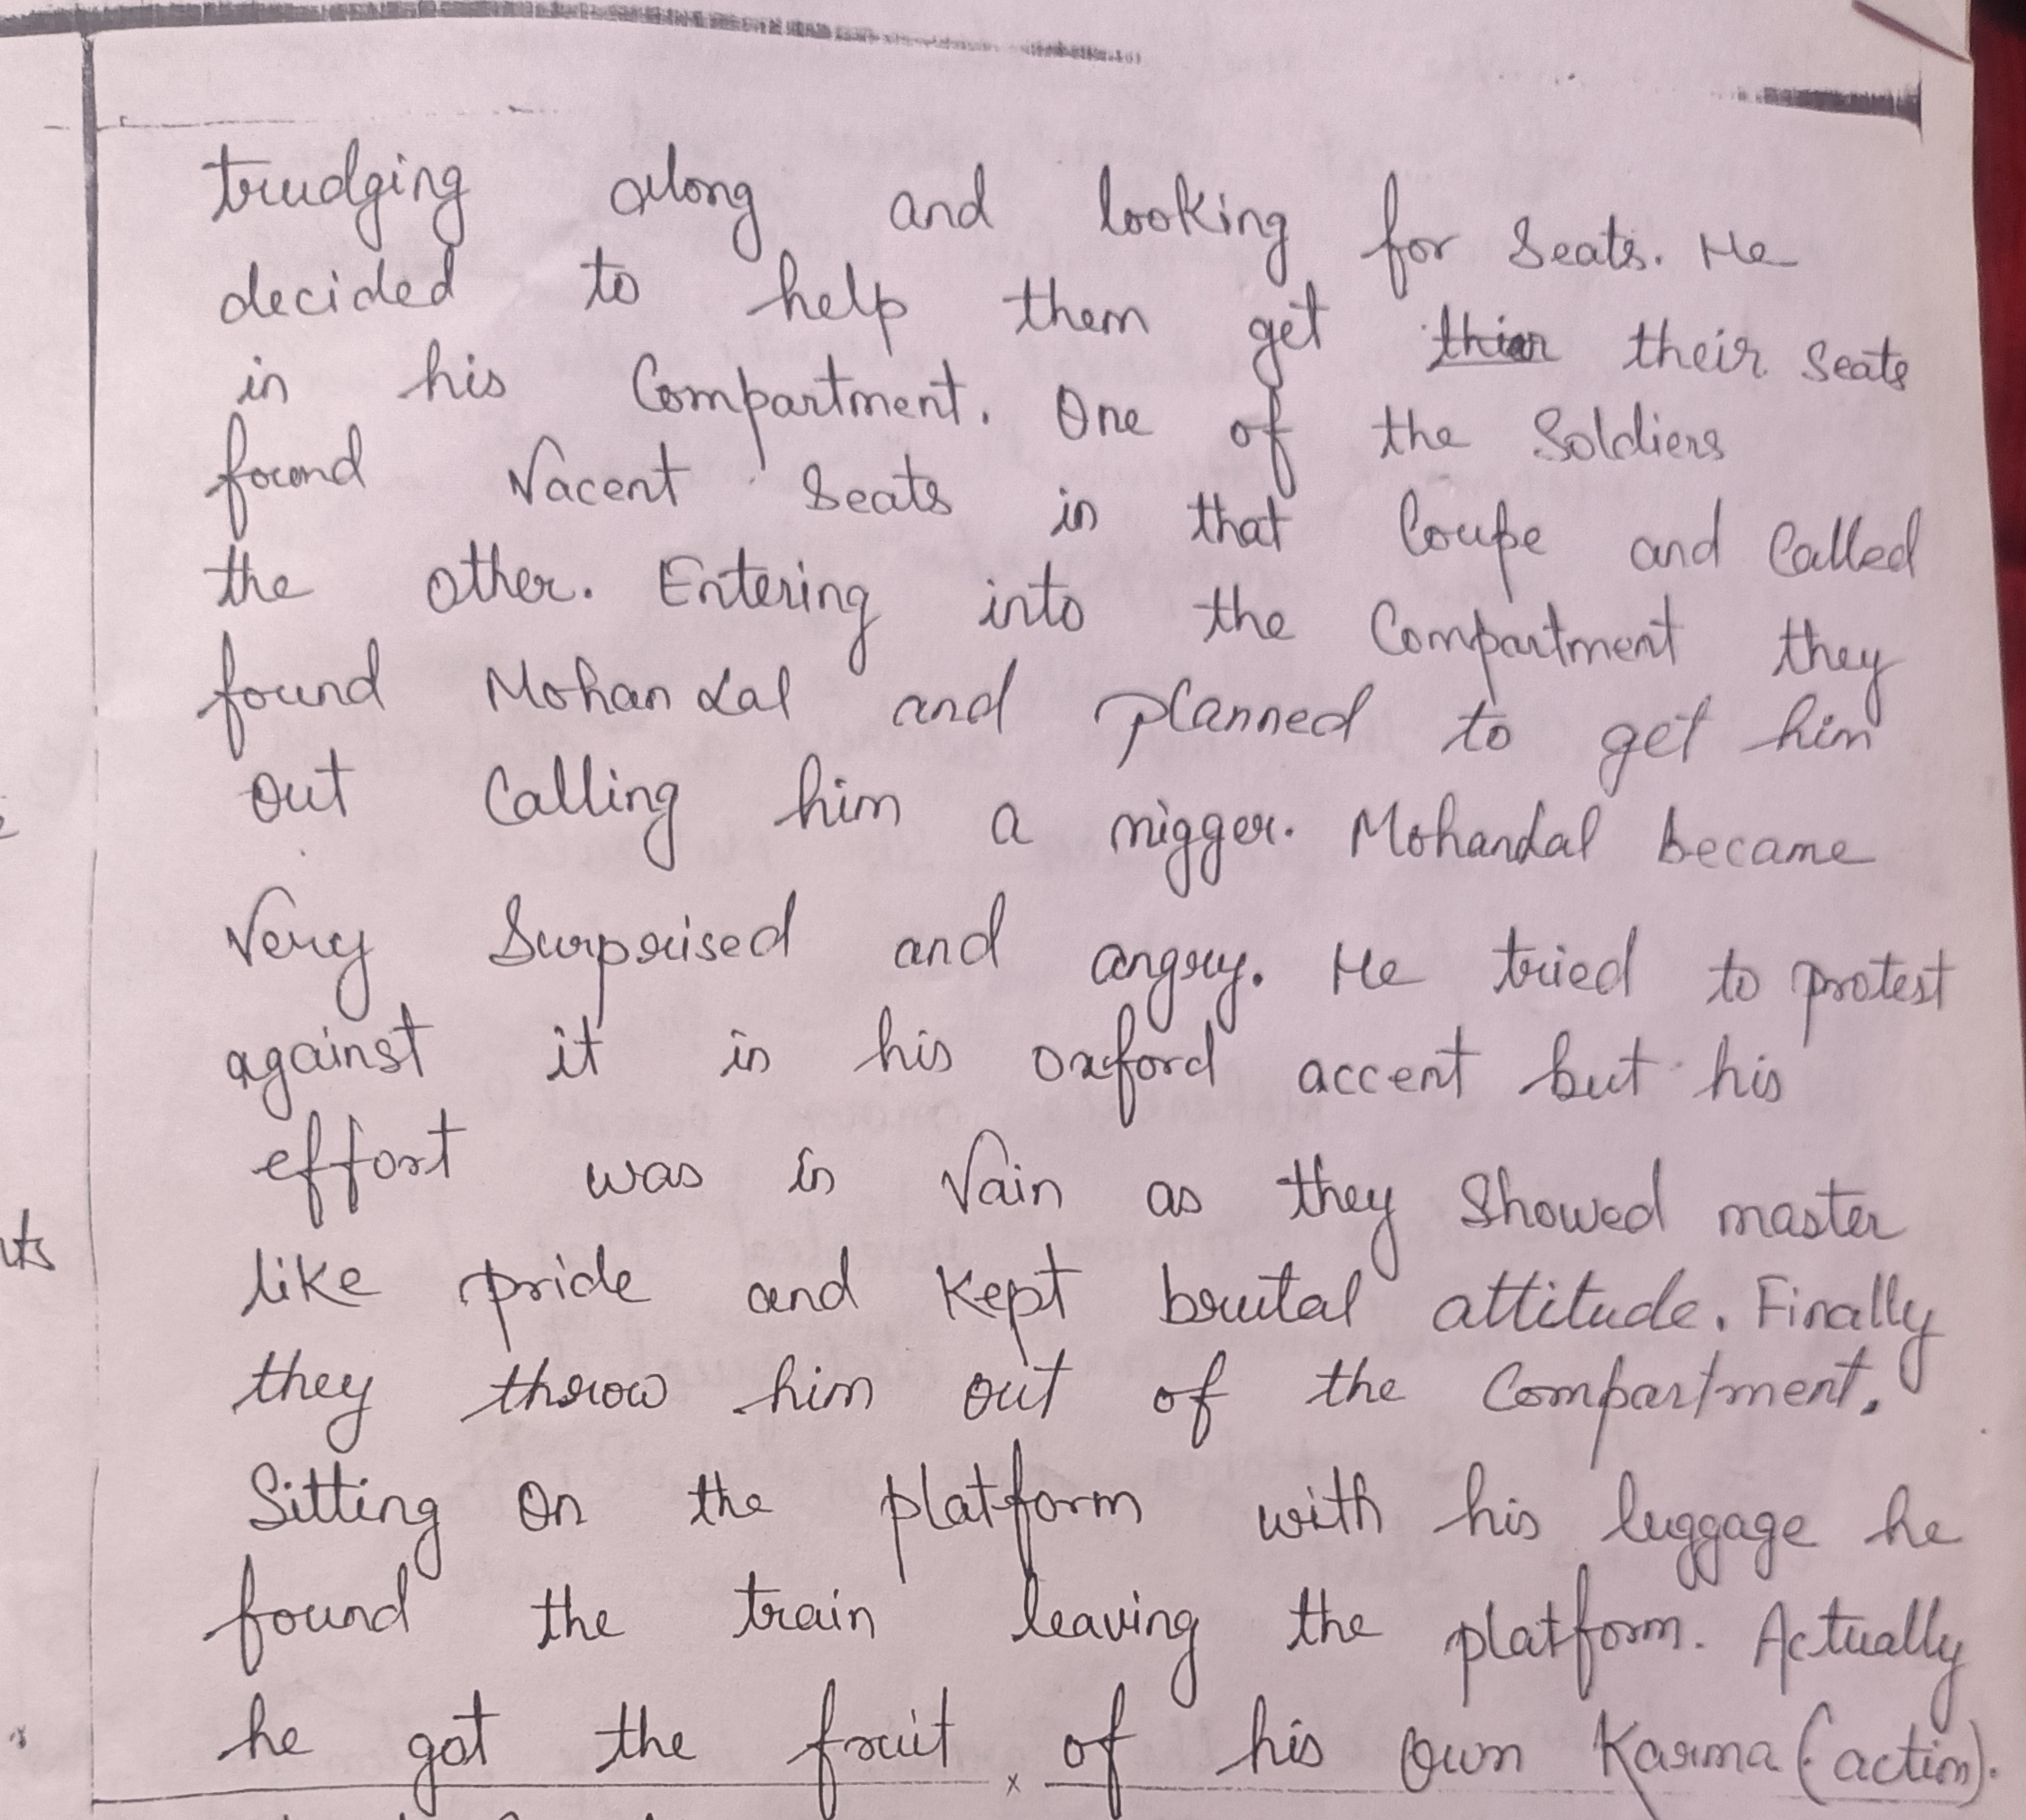 trudging along and looking for seats. He
decided to help them get their seats
in his Compartment. One of the Soldiers
found Vacent seats in that Coupe and Called
the other. Entering into the Compartment they
found Mohan Lal and planned to get him
out Calling him a nigger. MohanLal became
Very Surprised and angry. He tried to protest
against it in his oxford accent but his
effort was in Vain as they Showed master
like pride and kept brutal attitude. Finally
they throw him out of the Compartment.
Sitting on the platform with his luggage he
found the train leaving the platform. Actually
he got the fruit of his own Karma (action).